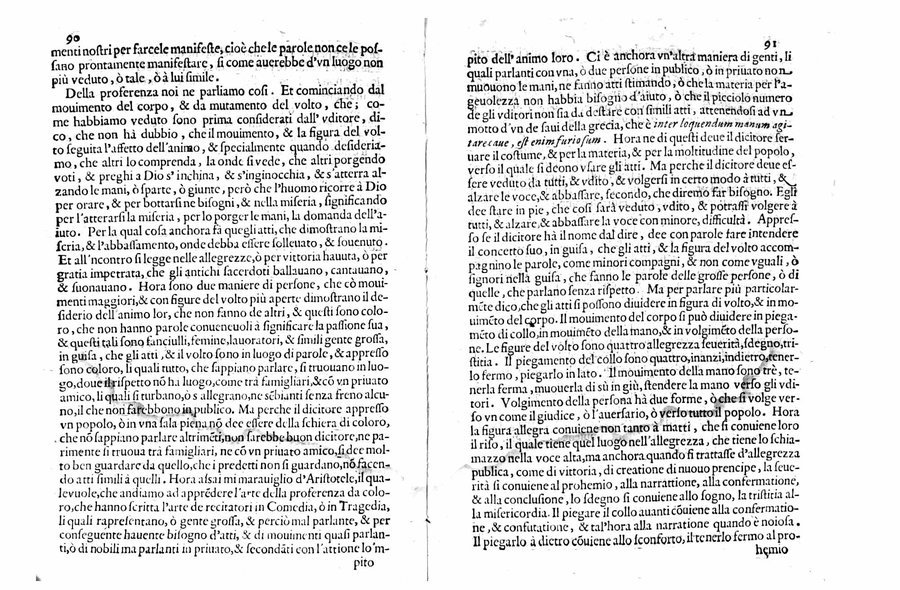 90
menti nostri per farcele manifeste, cioè che le parole non ce le pos-
sano prontamente manifestare, si come auerebbe d'vn luogo non
più veduto, ò tale, ò à lui simile.
Della proferenza noi ne parliamo cosi. Et cominciando dal
mouimento del corpo, & da mutamento del volto, che; co-
me habbiamo veduto sono prima considerati dall' vditore, di-
co, che non hà dubbio, che il mouimento, & la figura del vol-
to seguita l'affetto dell'animo, & specialmente quando desideria-
mo, che altri lo comprenda, la onde si vede, che altri porgendo
voti, & preghi a Dio s' inchina, & s'inginocchia, & s'atterra al-
zando le mani, ò sparte, ò giunte, però che l'huomo ricorre à Dio
per orare, & per bottarsi ne bisogni, & nella miseria, significando
per l'atterarsi la miseria, per lo porger le mani, la domanda dell'a-
iuto. Per la qual cosa anchora fà quegli atti, che dimostrano la mi-
seria, & l'abbassamento, onde debba essere solleuato, & souenuto.
Et all'ncontro si legge nelle allegrezze, ò per vittoria hauuta, ò per
gratia impetrata, che gli antichi sacerdoti ballauano, cantauano,
& suonauano. Hora sono due maniere di persone, che cõ moui-
menti maggiori, & con figure del volto più aperte dimostrano il de-
siderio dell'animo lor, che non fanno de altri, & questi sono colo-
ro, che non hanno parole conueneuoli à significare la passione sua,
& questi tali sono fanciulli, femine, lauoratori, & simili gente grossa,
in guisa, che gli atti, & il volto sono in luogo di parole, & appresso
sono coloro, li quali tutto, che sappiano parlare, si truouano in luo-
go, doue il rispetto nõ ha luogo, come trà famigliari, & cõ vn priuato
amico, li quali si turbano, ò s allegrano, ne sébianti senza freno alcu-
no, il che non farebbono in publico. Ma perche il dicitore appresso
vn popolo, ò in vna sala piena nõ dee essere della schiera di coloro,
che nõ sappiano parlare altriméti, non sarebbe buon dicitore, ne pa-
rimente si truoua trà famigliari, ne cõ vn priuato amico, si dee mol-
to ben guardare da quello, che i predetti non si guardano, nõ facen-
do atti simili à quelli. Hora assai mi marauiglio d'Aristotele, il qua-
leuole, che andiamo ad appréder l'arte della proferenza da colo-
ro, che hanno scritta l'arte de recitatori in Comedia, ò in Tragedia,
li quali rapresentano, ò gente grossa, & perciò mal parlante, & per
conseguente hauente bisogno d'atti, & di mouimenti quasi parlan-
ti, ò di nobili ma parlanti in priuato, & secondãti con l'attione lo'm-
pito
91
pito dell' animo loro. Ci è anchora vn'altra maniera di genti, li
quali parlanti con vna, ò due persone in publico, ò in priuato non
muouono le mani, ne fanno atti stimando; ò che la materia per l'a-
geuolezza non habbia bisogno d'aiuto, ò che il picciolo numero
de gli vditori non sia da destare con simili atti, attenendosi ad vn
motto d'vn de saui della grecia, che è inter loquendum manum agi-
tare caue, est enim furiosum. Hora ne di questi deue il dicitore ser-
uare il costume, & per la materia, & per la moltitudine del popolo,
verso il quale si deono vsare gli atti. Ma perche il dicitore deue es-
sere veduto da tutti, & vdito, & volgersi in certo modo à tutti, &
alzare le voce, & abbassare, secondo, che diremo far bisogno. Egli
dee stare in pie, che cosi sarà veduto, vdito, & potrassi volgere à
tutti, & alzare, & abbassare la voce con minore, difficultà. Appres-
so se il dicitore hà il nome dal dire, dee con parole fare intendere
il concetto suo, in guisa, che gli atti, & la figura del volto accom-
pagnino le parole, come minori compagni, & non come vguali, ò
signori nella guisa, che fanno le parole delle grosse persone, ò di
quelle, che parlano senza rispetto. Ma per parlare più particolar-
méte dico, che gli atti si possono diuidere in figura di volto, & in mo-
uiméto del corpo. Il mouimento del corpo si può diuidere in piega-
méto di collo, in mouiméto della mano, & in volgiméto della perso-
ne. Le figure del volto sono quattro allegrezza seuerità, sdegno, tri-
stitia. Il piegamento del collo sono quattro, inanzi, indietro, tener-
lo fermo, piegarlo in lato. Il mouimento della mano sono trè, te-
nerla ferma, muouerla di sù in giù, stendere la mano verso gli vdi-
tori. Volgimento della persona hà due forme, ò che si volge ver-
so vn come il giudice, ò l'auersario, ò verso tutto il popolo. Hora
la figura allegra conuiene non tanto à matti, che si conuiene loro
il riso, il quale tiene quel luogo nell'allegrezza, che tiene lo schia-
mazzo nella voce alta, ma anchora quando si trattasse d'allegrezza
publica, come di vittoria, di creatione di nuouo prencipe, la seue-
rità si conuiene al prohemio, alla narrattione, alla confermatione,
& alla conclusione, lo sdegno si conuiene allo sogno, la tristitia al-
la misericordia. Il piegare il collo auanti cõuiene alla confermatio-
ne, & confutatione, & tal'hora alla narratione quando è noiosa.
Il piegarlo à dietro cõuiene allo sconforto, il tenerlo fermo al pro-
hemio